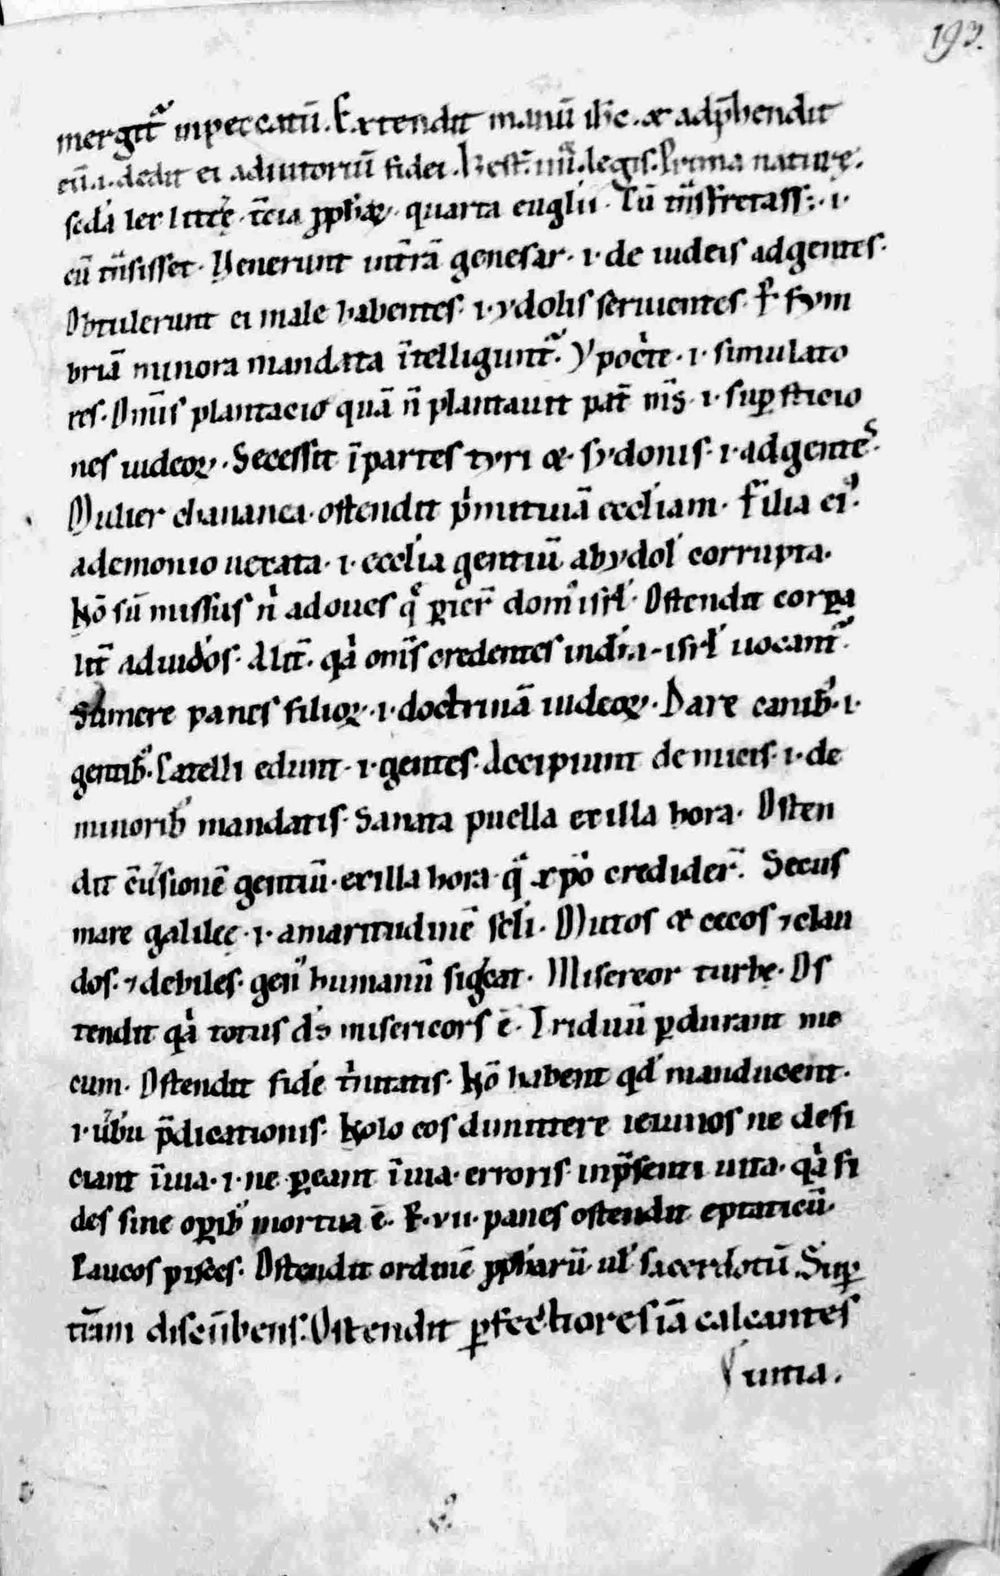 193.
mergit᷑ in peccatū. Extendit manū ih̄c. et adp̄hendit
eū .i. dedit ei adiutoriū fidei. Prima naturę.
quarta euglii. Tū
eū t̄nsisset. Venerunt in t̄rā genesar. i. de iudeis ad gentes.
Obtulerunt ei male habentes. i. ydolis seruientes. fym
briā minora mandata ītelligunt᷑. Ypoc̓te. i. simulato
res. Om̄is plantacio quā n̄ plantauit pat̄ m̄s. i. sup̱sticio
nes iudeoꝝ. Secessit ī partes tyri et sydonis. i. ad gentes.
Mulier chananea. ostendit p̓mitiuā eccliam. filia ei᾽.
a demonio uexata. i. ecclia gentiū ab ydol̓ corrupta.
Nō sū missus n̓ ad oues q̄ ꝑier̄ dom᾽ isrl̓. Ostendit corꝑa
lit̄ ad iud̓os. Alit̄. q̓a om̄s credentes isrl̓ uocant᷑.
Sumere panes filioꝝ. i. doctrinā iudeoꝝ. Dare canib᾽. i.
gentib᾽. Catelli edunt. i. gentes. Accipiunt de micis. i. de
minorib᾽ mandatis. Sanata puella ex illa hora. Osten
dit c̄u̓sionē gentiū. ex illa hora q̄ xp̄o credider̄. Secus
mare galileę. i. amaritudinē scl̓i. Mutos et cecos ⁊ clau
dos. ⁊ debiles. gen᾽ humanū sig̓cat. Misereor turbe. Os
tendit q̓a totus d̄s misericors ē. Triduū ꝑdurant me
cum. Ostendit fidē t̓nitatis. Nō habent qd̓ manducent.
i. u̓bū p̄dicationis. Nolo eos dimittere ieiunos ne defi
ciant ī uia. i. ne ꝑeant ī uia. erroris in p̄senti uita. q̓a fi
des sine oꝑib᾽ mortua ē. vii. panes ostendit eptaticū.
Paucos pisces. Ostendit ordinē ꝓphārū ul̓ sacerdotū. Suꝑ
t̄ram discūbens. Ostendit ꝑfectiores iā calcantes